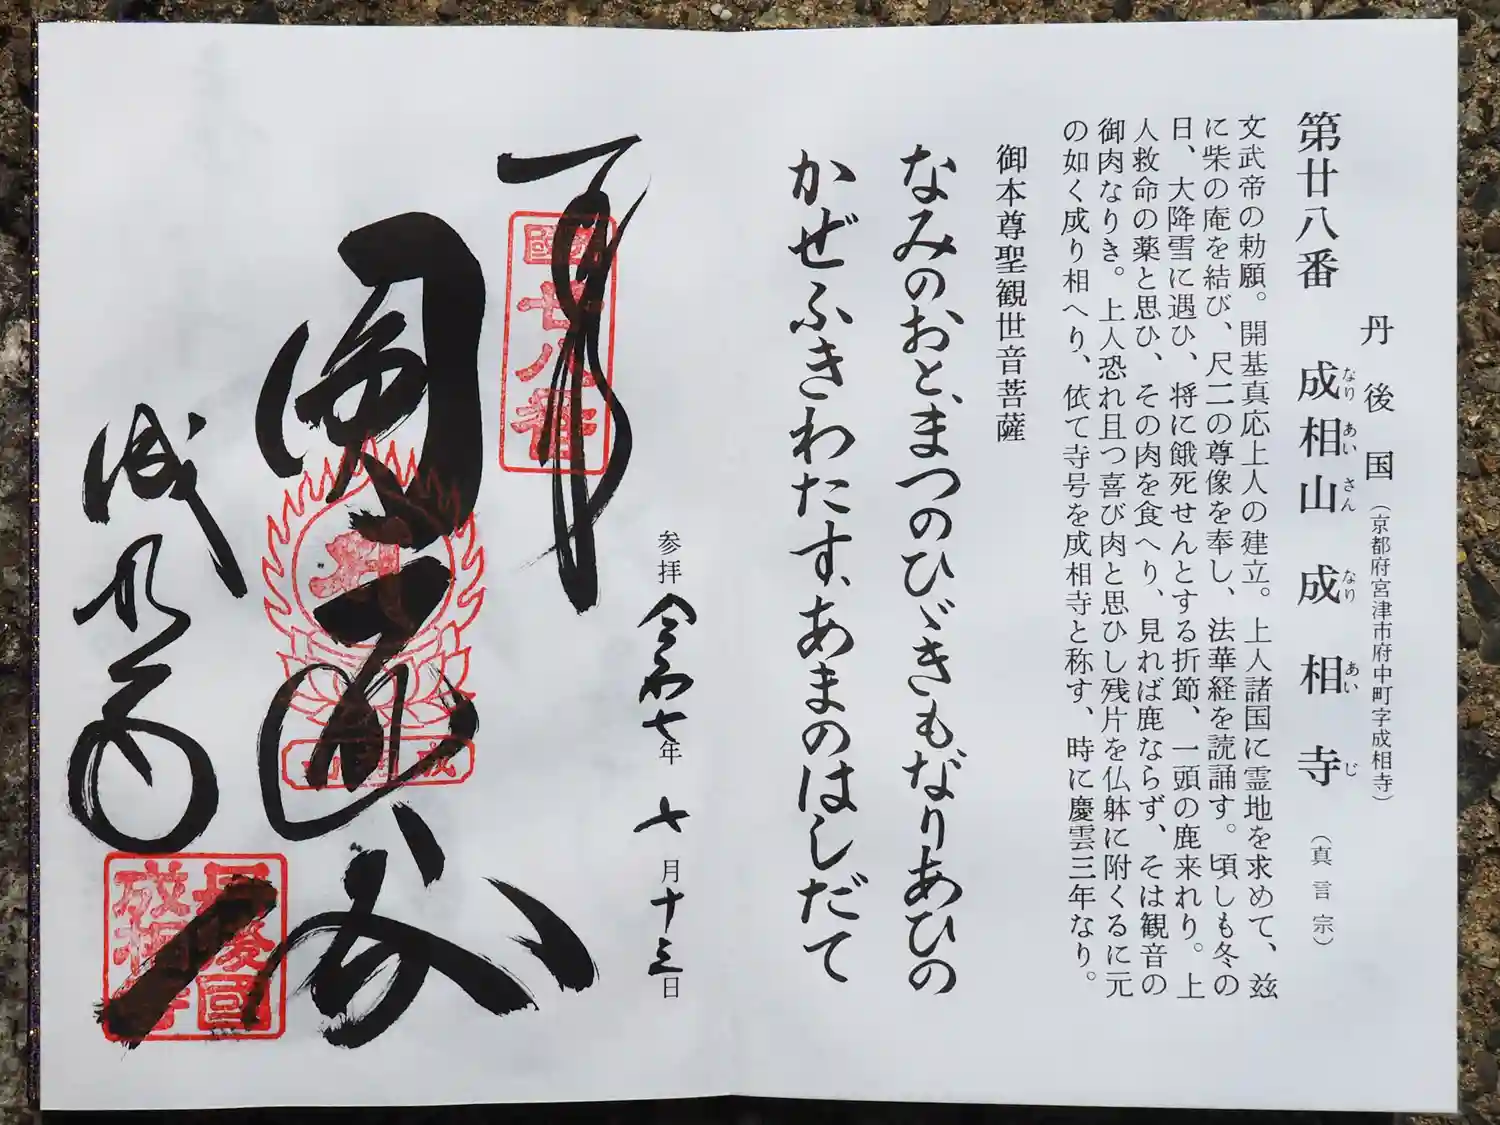 丹後国（京都府宮津市府中町字成相寺）
第廿八番 成相山 成相寺（真言宗）
なりあいさん なりあいじ
文武帝の勅願。開基真応上人の建立。上人諸国に霊地を求めて、玆
に柴の庵を結び、尺二の尊像を奉し、法華経を読誦す。頃しも冬の
日、大降雪に遇ひ、将に餓死せんとする折節、一頭の鹿来れり。上
人救命の薬と思ひ、その肉を食へり、見れば鹿ならず、そは観音の
御肉なりき。上人恐れ且つ喜び肉と思ひし残片を仏躰に附くるに元
の如く成り相へり、依て寺号を成相寺と称す、時に慶雲三年なり。
御本尊聖観世音菩薩
なみのおと、まつのひゞきもなりあひの
かぜふきわたす、あまのはしだて
參拝 令和七年 七月十三日
奉
國廿八番
成相寺
丹後國
成相寺